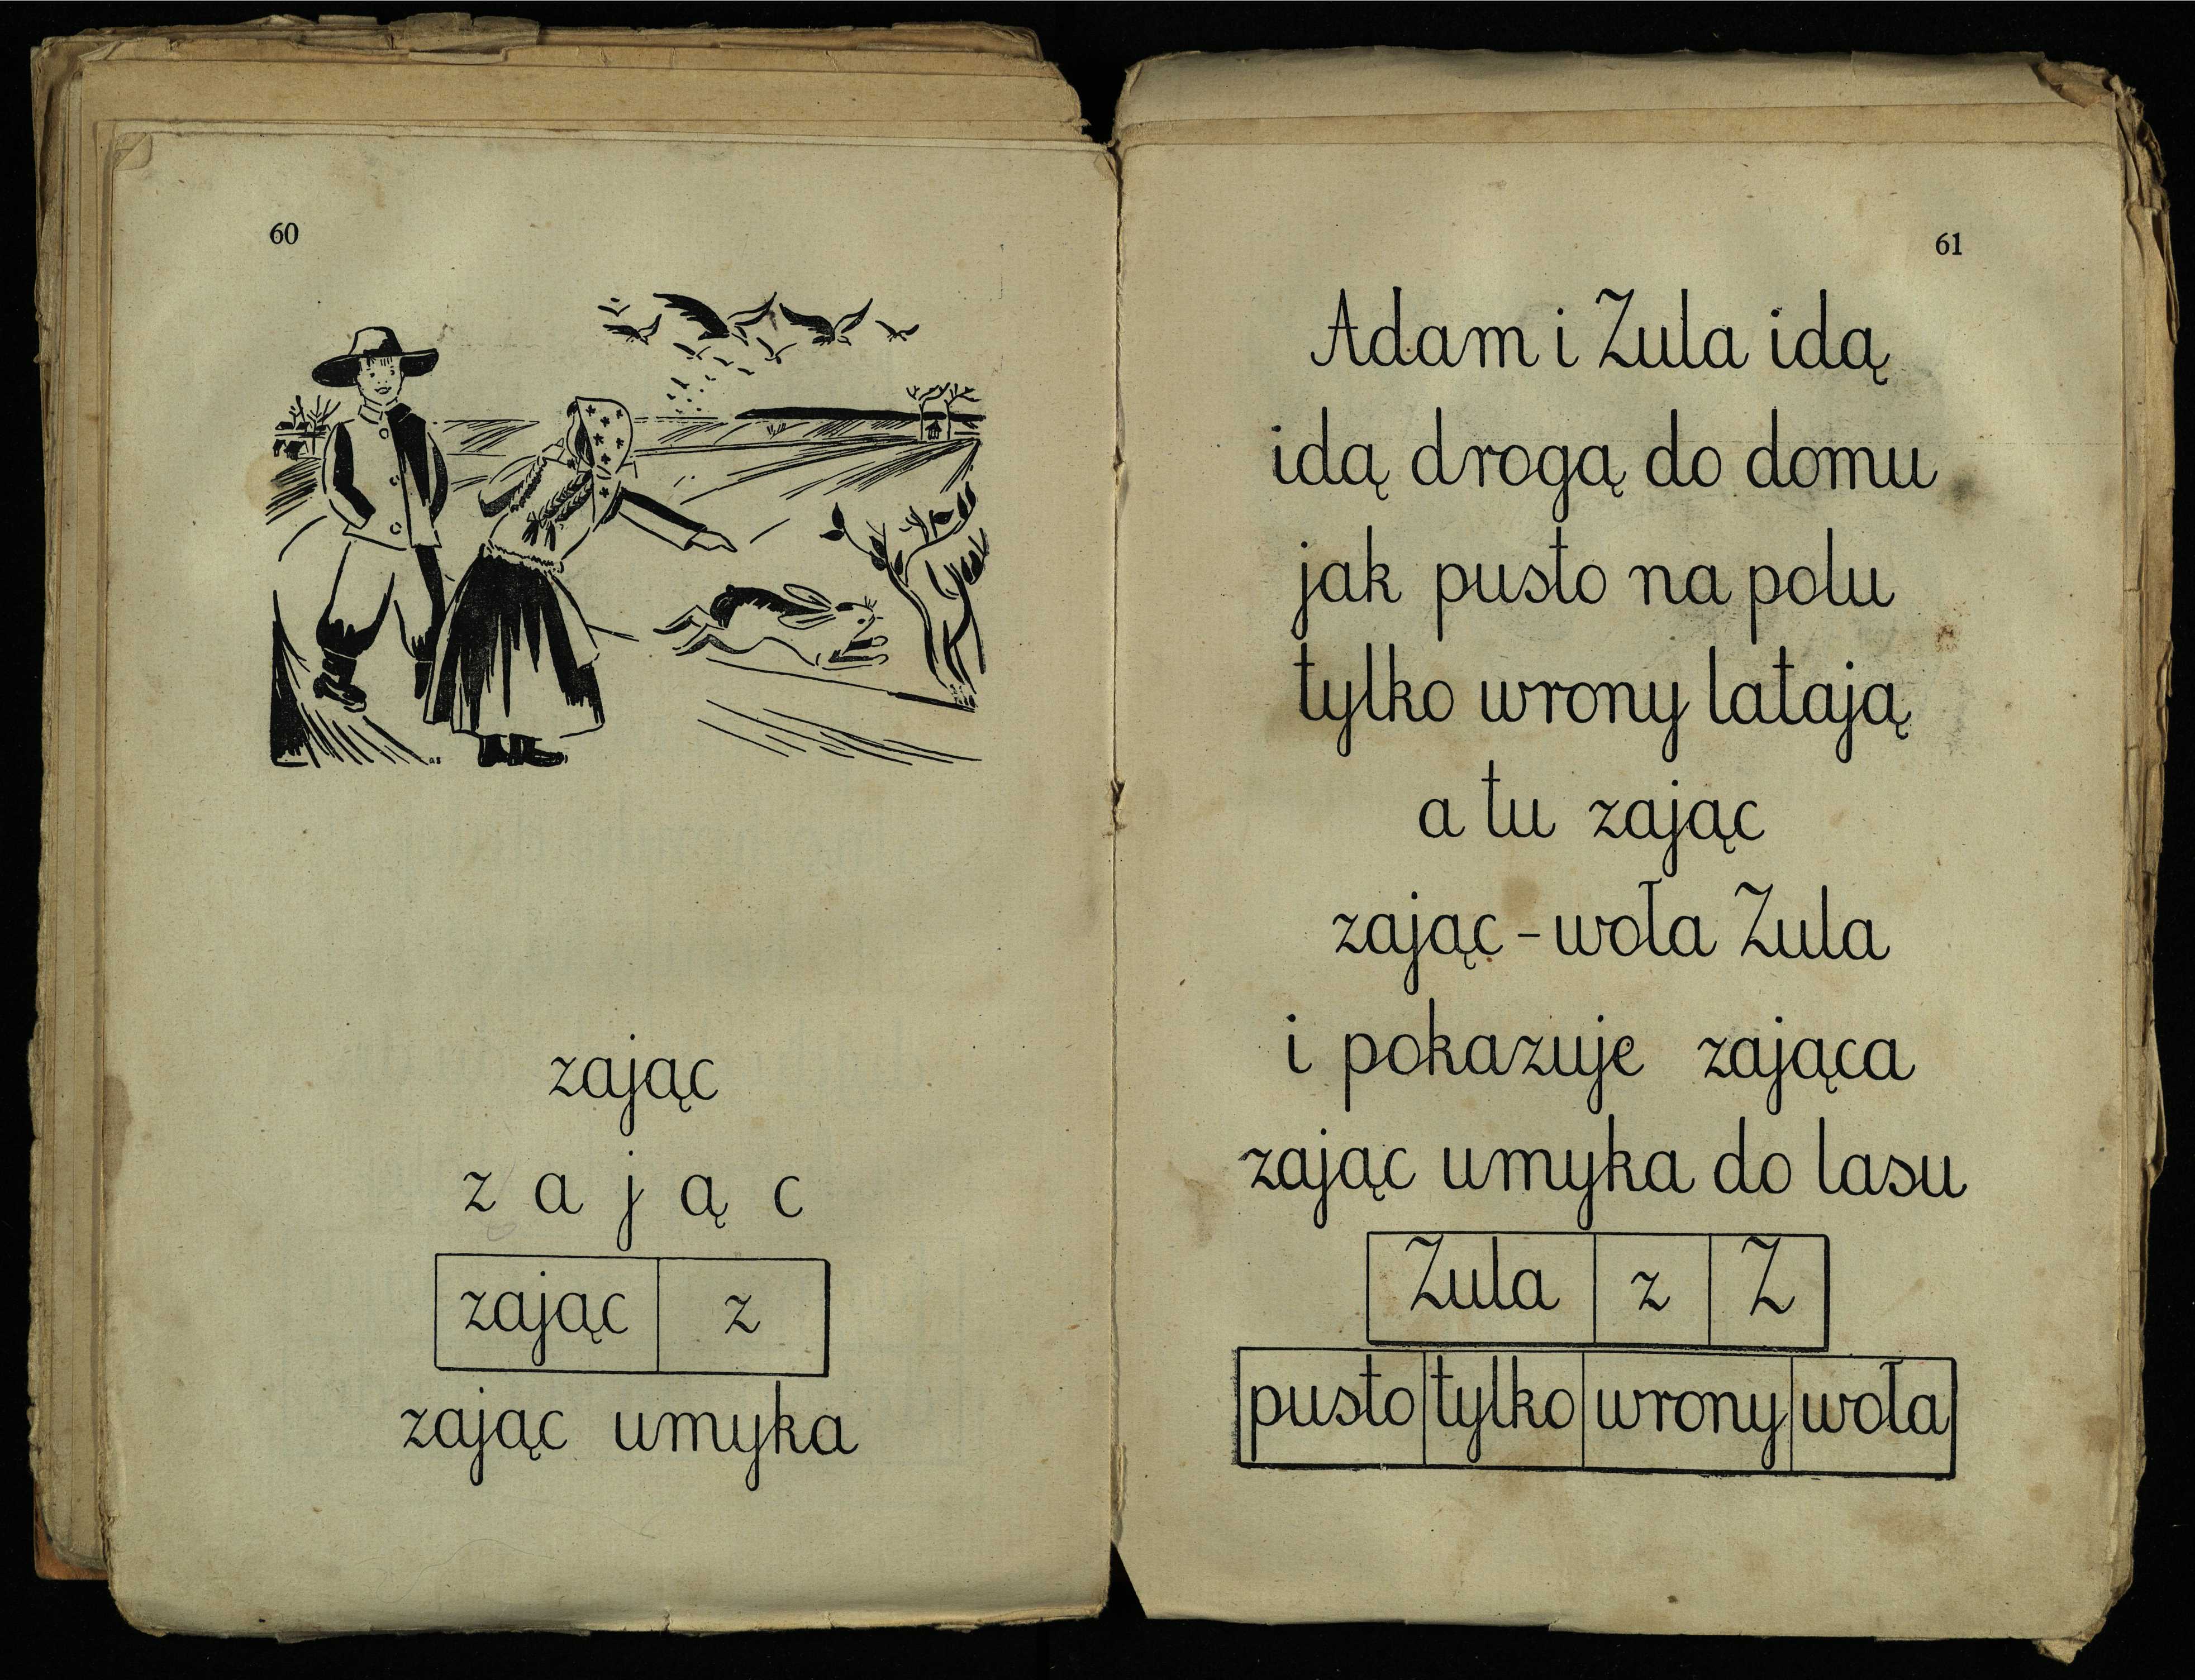 60
zając
z a j ą c
zając z
zając umyka
61
Adam i Zula idą
idą drogą do domu
jak pusto na polu
tylko wrony latają
a tu zając
zając - woła Zula
i pokazuje zająca
zając umyka do lasu
Zula z Z
pusto tylko wrony woła